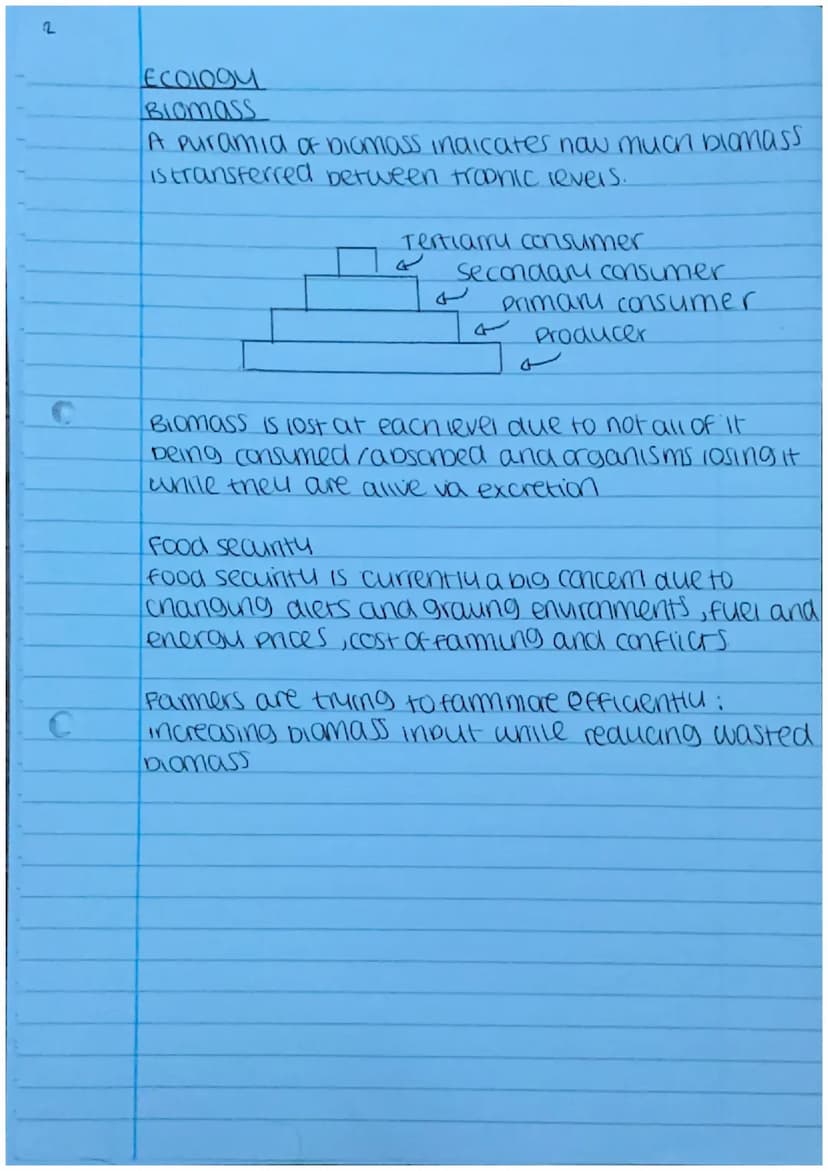 2
Ecology
Biomass
A pyramid of biomass indicates how much biomass
is transferred between trophic levels.
Tertiary consumer
Secondary consumer
Primary consumer
Producer
Biomass is lost at each level due to not all of it
being consumed/absorbed and organisms losing it
while they are alive via excretion
Food security
Food security is currently a big concern due to
changing diets and growing environments, fuel and
energy prices, cost of farming and conflicts
Farmers are trying to farm more efficiently:
increasing biomass input while reducing wasted
biomass